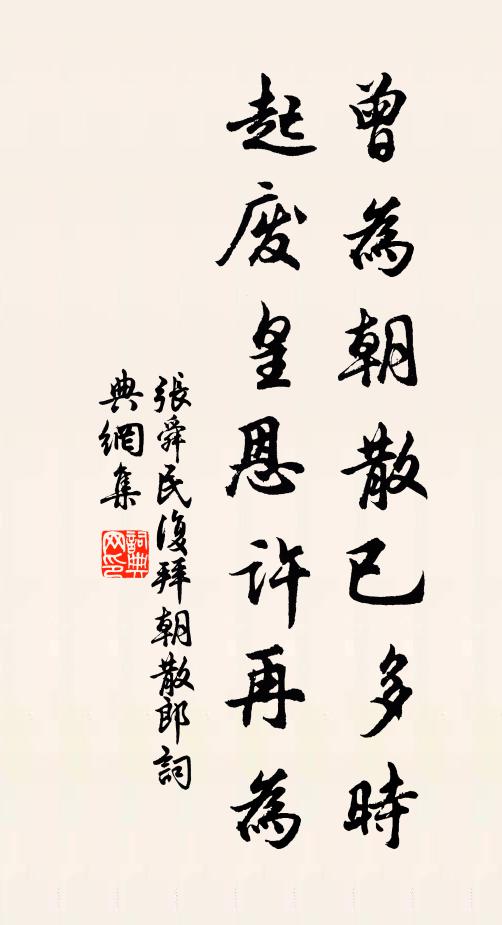 曾為朝散已多時
起廢皇恩許再為
張舜民復拜朝散郎詞
典網集
詞典
网印